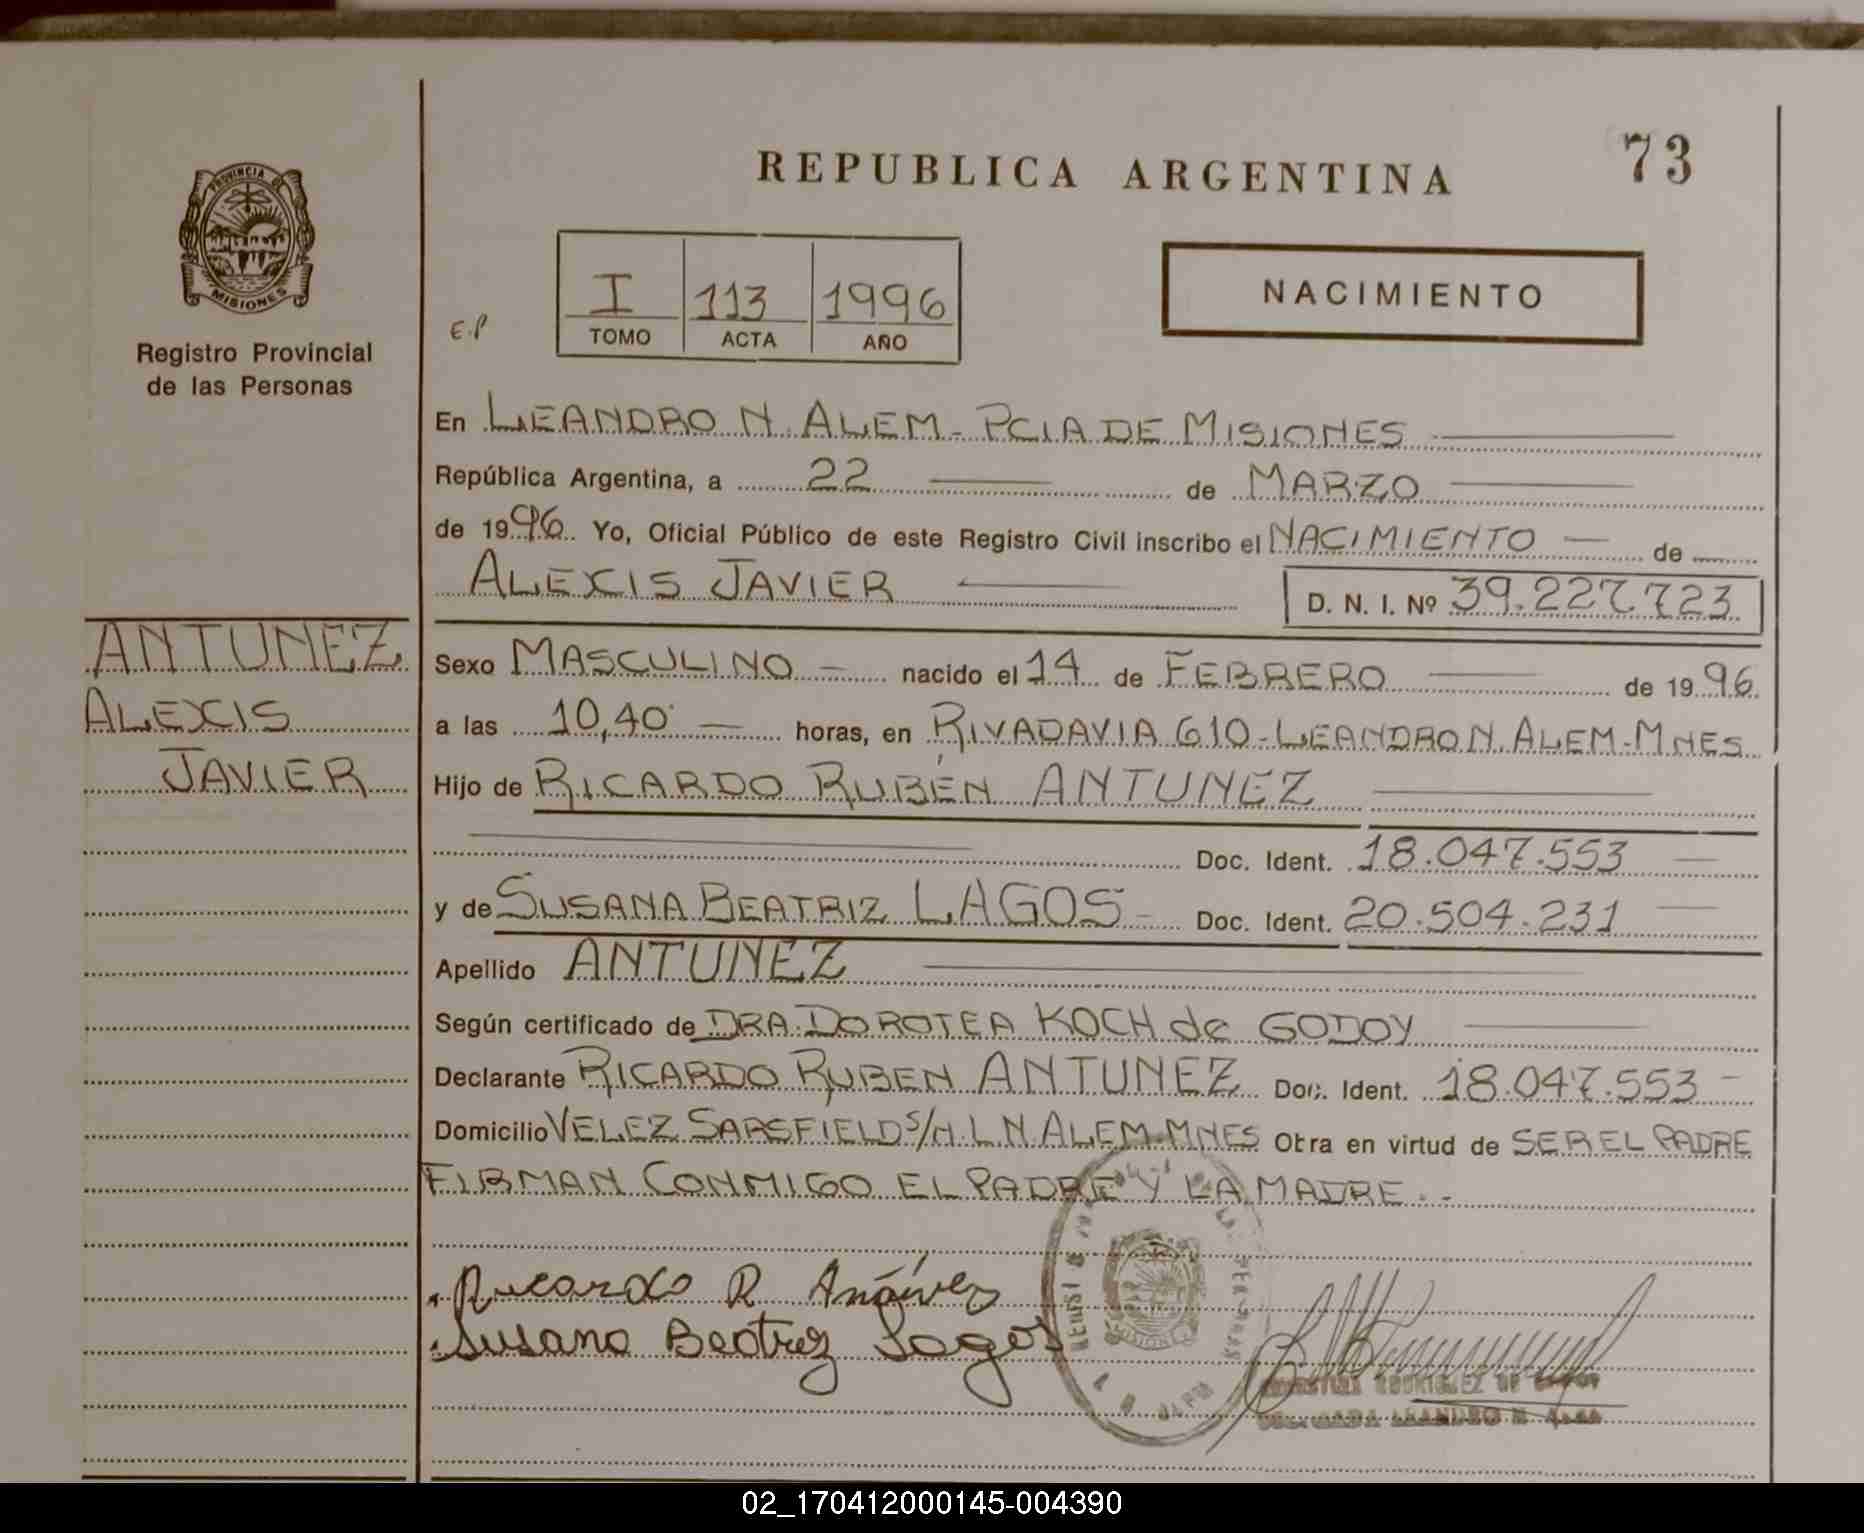 REPUBLICA ARGENTINA
73
PROVINCIA DE
MISIONES
Registro Provincial
de las Personas
E.P
I 113 1996
TOMO ACTA AÑO
NACIMIENTO
En LEANDRO N. ALEM - PCIA DE MISIONES
República Argentina, a 22 de MARZO
de 1996 Yo, Oficial Público de este Registro Civil inscribo el NACIMIENTO de
ALEXIS JAVIER D. N. I. Nº 39.227.723
ANTUNEZ
ALEXIS
JAVIER
Sexo MASCULINO nacido el 14 de FEBRERO de 1996
a las 10,40 horas, en RIVADAVIA 610 - LEANDRO N. ALEM - MNES
Hijo de RICARDO RUBÉN ANTUNEZ
Doc. Ident. 18.047.553
y de SUSANA BEATRIZ LAGOS Doc. Ident. 20.504.231
Apellido ANTUNEZ
Según certificado de DRA. DOROTEA KOCH de GODOY
Declarante RICARDO RUBEN ANTUNEZ Doc. Ident. 18.047.553
Domicilio VELEZ SARSFIELD S/N. L N. ALEM - MNES Obra en virtud de SER EL PADRE
FIRMAN CONMIGO EL PADRE Y LA MADRE.-
Ricardo R Antúnez
Susana Beatriz Lagos
RODRIGUEZ DE
DELEGADA LEANDRO N. ALEM
02_170412000145-004390